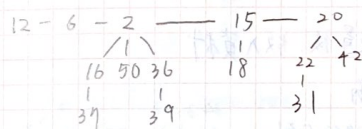 12 - 6 - 2 — 15 — 20
16 50 36 18 22 42
37 39 31